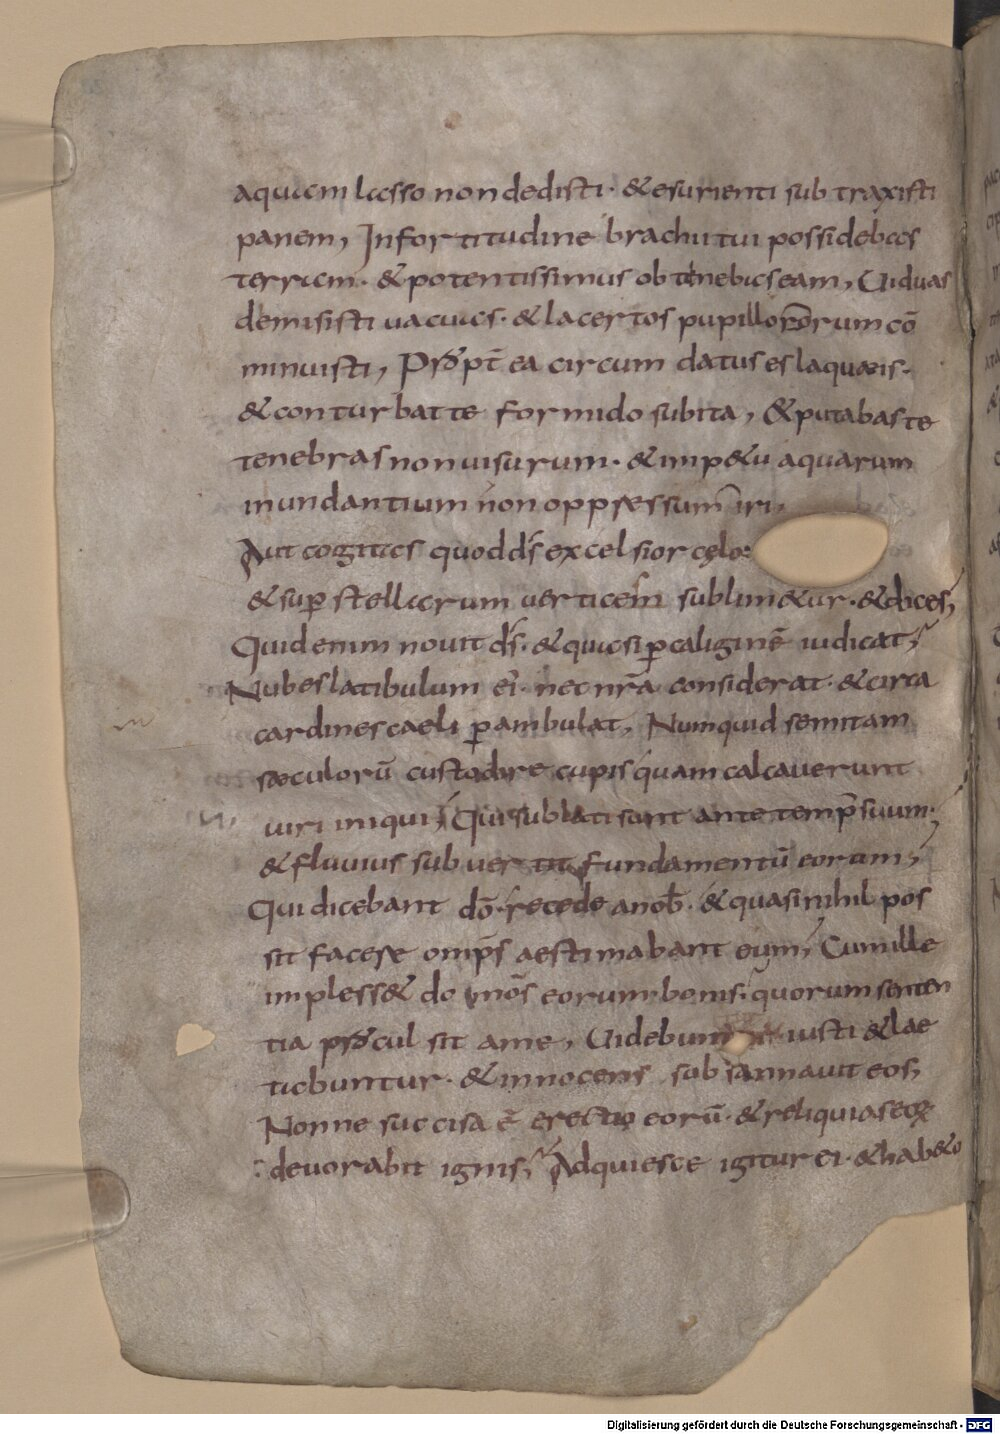 aquam lasso non dedisti· & esurienti sub traxisti
panem, In fortitudine brachii tui possidebas
terram· & potentissimus obtenebas eam, Uiduas
demisisti uacuas· & lacertos pupillororum cō
minuisti, Propt̄ ea circum datus es laquaeis·
& conturbat te formido subita, & putabas te
tenebras non uisurum· & imp&u aquarum
inundantium non oppressum iri,
Aut cogitas quod ds̄ excelsior cęlo·
& sup̄ stellarum uerticem sublim&ur· & dices,
Quid enim nouit ds̄· & quasi p̄ caliginē iudicat,
Nubes latibulum ei· nec nr̄a considerat· & circa
cardines caeli p̄ambulat, Numquid semitam
sæculorū custodire cupis quam calcauerunt
uiri iniqui, Qui sublati sunt ante temp̄ suum·
& fluuius subuertit fundamentū eorum,
Qui dicebant dō· recede a nob̄· & quasi nihil pos
sit facere omp̄s aestimabant eum, Cum ille
impless& do mōs eorum bonis· quorum senten
tia procul sit a me, Uidebunt iusti & lae
tabuntur· & innocens sub sannauit eos,
Nonne succisa ē erectio eorū· & reliquias eoꝝ
deuorabit ignis, Adquiesce igitur ei· & hab&o
Digitalisierung gefördert durch die Deutsche Forschungsgemeinschaft - DFG